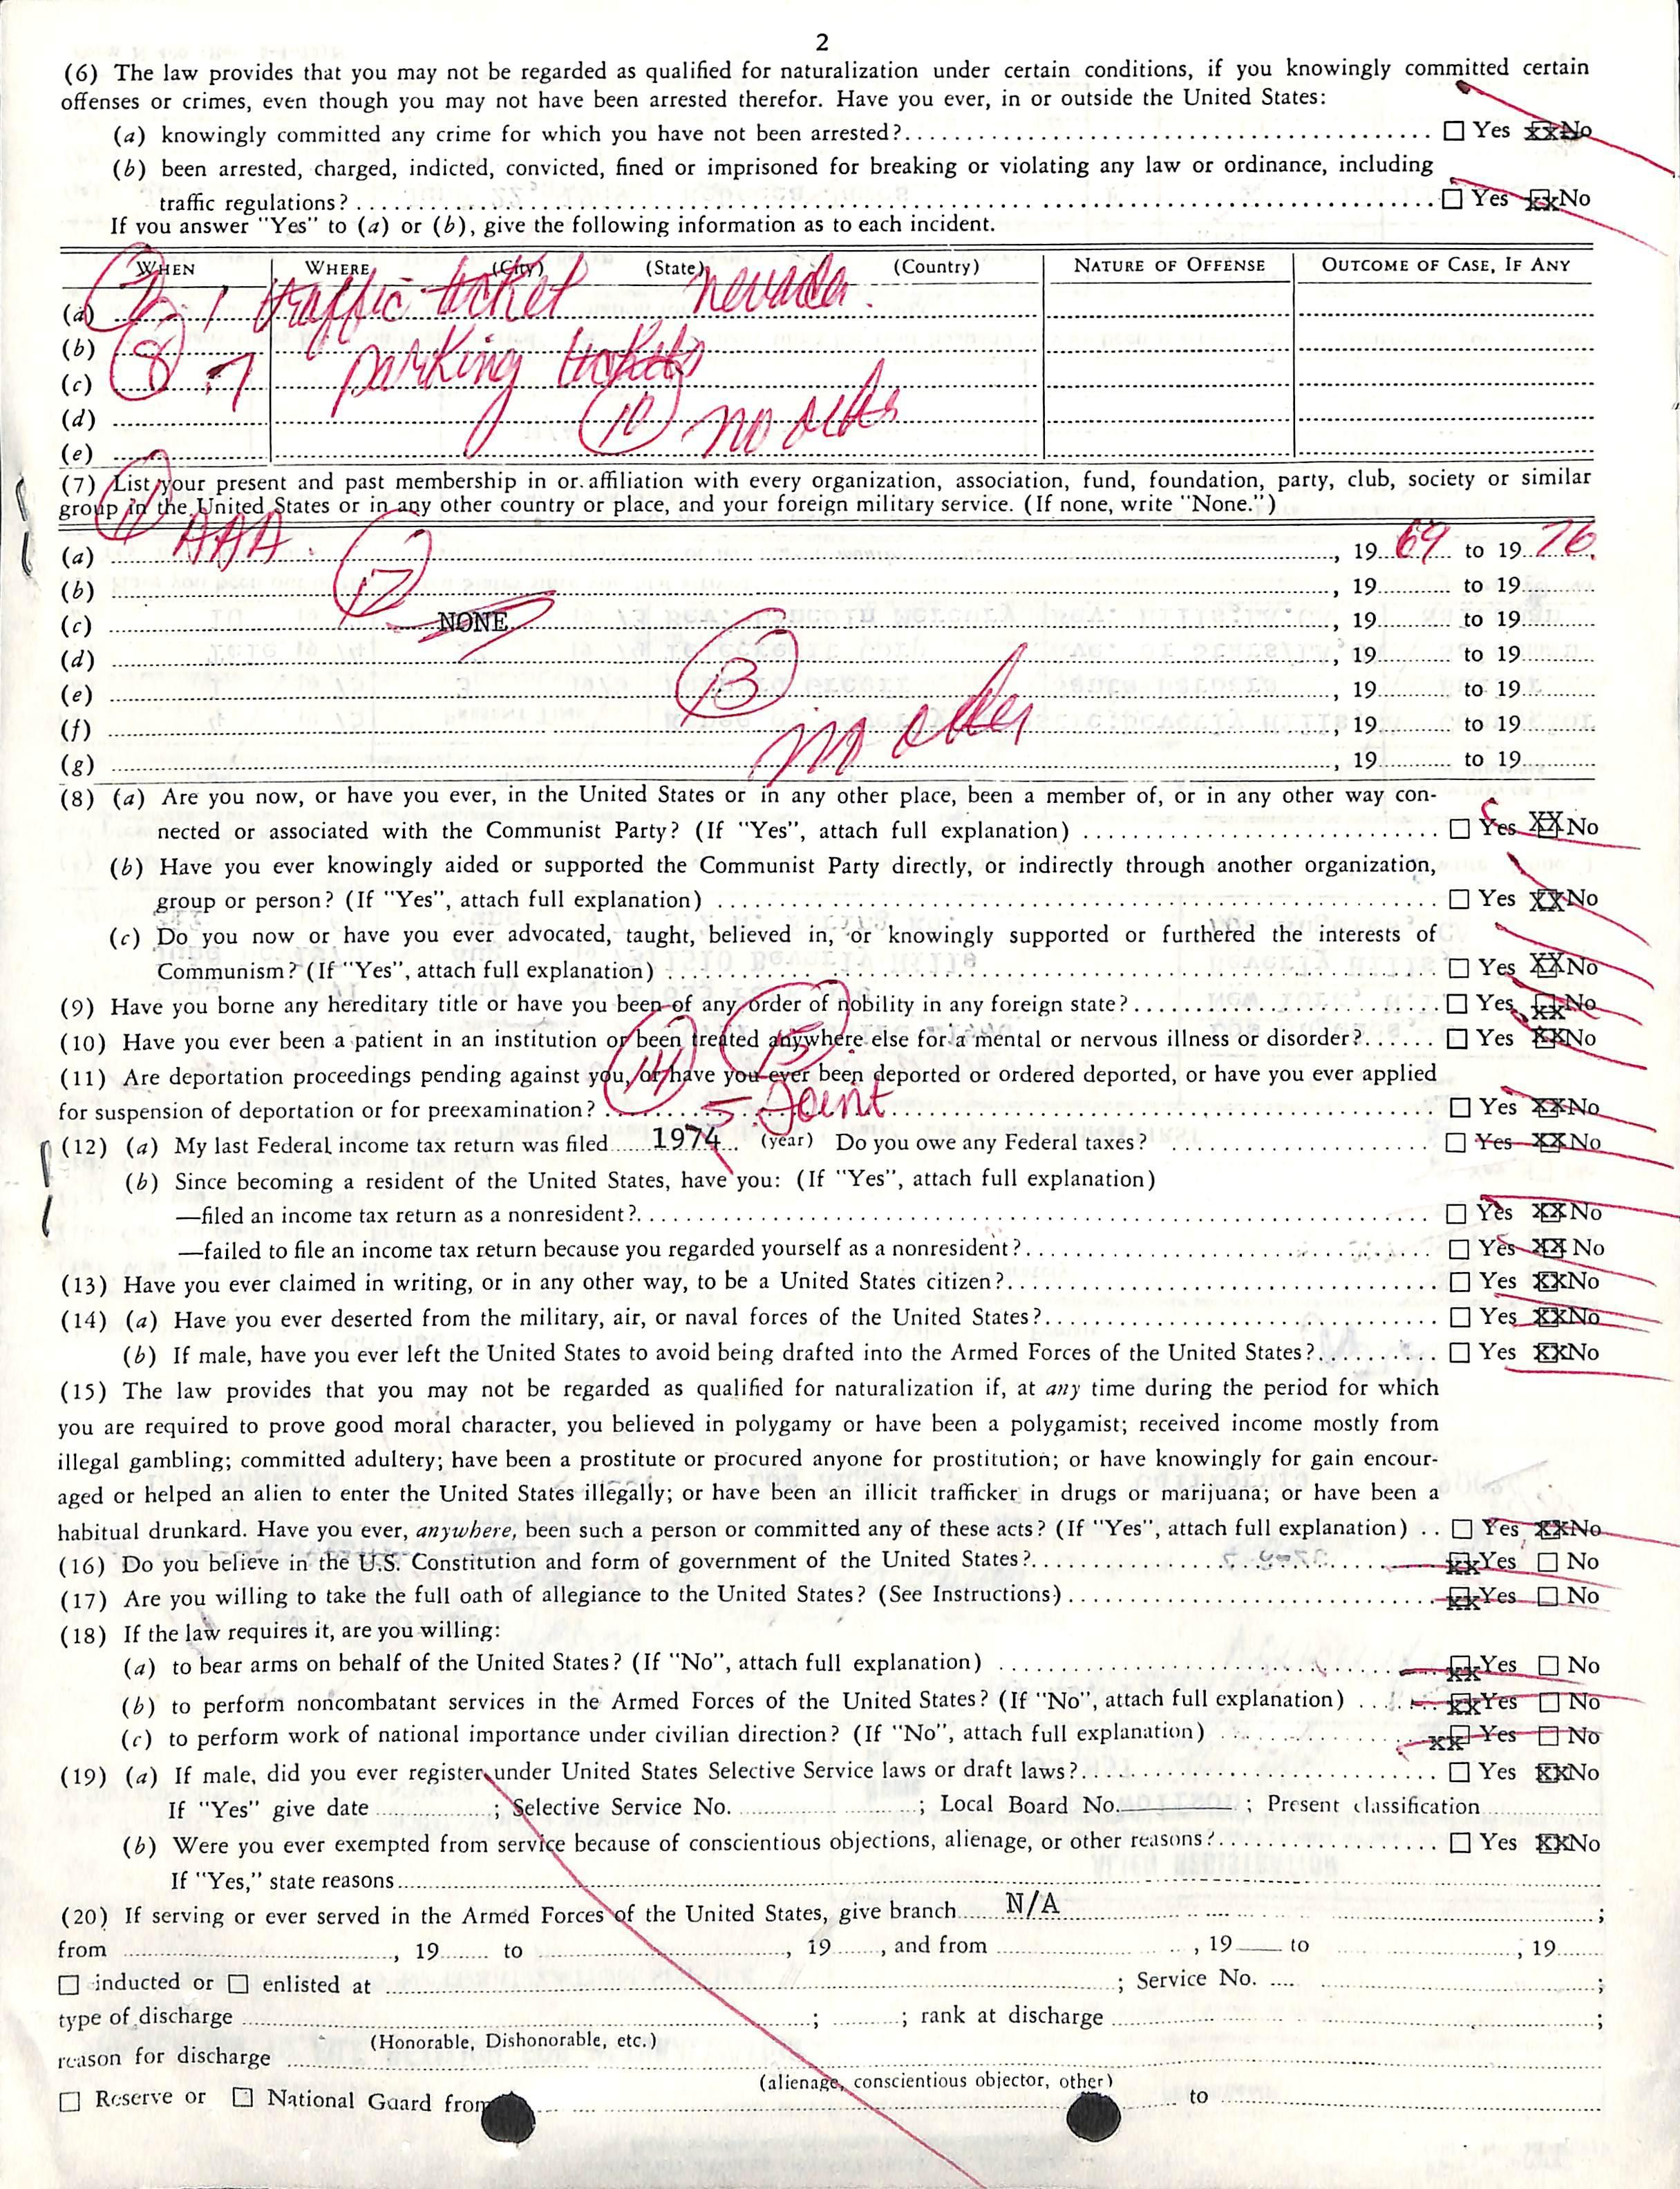 2
(6) The law provides that you may not be regarded as qualified for naturalization under certain conditions, if you knowingly committed certain
offenses or crimes, even though you may not have been arrested therefor. Have you ever, in or outside the United States:
(a) knowingly committed any crime for which you have not been arrested? ☐ Yes xx No
(b) been arrested, charged, indicted, convicted, fined or imprisoned for breaking or violating any law or ordinance, including
traffic regulations? ☐ Yes xx No
If you answer "Yes" to (a) or (b), give the following information as to each incident.
WHEN WHERE (City) (State) (Country) NATURE OF OFFENSE OUTCOME OF CASE, IF ANY
(a) 1 traffic ticket nevada.
(b)
(c) 8 7 parking tickets
(d) 10 no
(e)
(7) List your present and past membership in or affiliation with every organization, association, fund, foundation, party, club, society or similar
group in the United States or in any other country or place, and your foreign military service. (If none, write "None.")
(a) AAA. , 19 69 to 19 76.
(b) 12 , 19 to 19
(c) NONE , 19 to 19
(d) , 19 to 19
(e) 13 , 19 to 19
(f) , 19 to 19
(g) , 19 to 19
(8) (a) Are you now, or have you ever, in the United States or in any other place, been a member of, or in any other way con-
nected or associated with the Communist Party? (If "Yes", attach full explanation) ☐ Yes XX No
(b) Have you ever knowingly aided or supported the Communist Party directly, or indirectly through another organization,
group or person? (If "Yes", attach full explanation) ☐ Yes XX No
(c) Do you now or have you ever advocated, taught, believed in, or knowingly supported or furthered the interests of
Communism? (If "Yes", attach full explanation) ☐ Yes XX No
(9) Have you borne any hereditary title or have you been of any order of nobility in any foreign state? ☐ Yes xx No
(10) Have you ever been a patient in an institution or been treated anywhere else for a mental or nervous illness or disorder? ☐ Yes xx No
(11) Are deportation proceedings pending against you, or have you ever been deported or ordered deported, or have you ever applied
for suspension of deportation or for preexamination? ☐ Yes xx No
14 15 5 Joint
(12) (a) My last Federal income tax return was filed 1974 (year) Do you owe any Federal taxes? ☐ Yes xx No
(b) Since becoming a resident of the United States, have you: (If "Yes", attach full explanation)
—filed an income tax return as a nonresident? ☐ Yes xx No
—failed to file an income tax return because you regarded yourself as a nonresident? ☐ Yes xx No
(13) Have you ever claimed in writing, or in any other way, to be a United States citizen? ☐ Yes xx No
(14) (a) Have you ever deserted from the military, air, or naval forces of the United States? ☐ Yes xx No
(b) If male, have you ever left the United States to avoid being drafted into the Armed Forces of the United States? ☐ Yes xx No
(15) The law provides that you may not be regarded as qualified for naturalization if, at any time during the period for which
you are required to prove good moral character, you believed in polygamy or have been a polygamist; received income mostly from
illegal gambling; committed adultery; have been a prostitute or procured anyone for prostitution; or have knowingly for gain encour-
aged or helped an alien to enter the United States illegally; or have been an illicit trafficker in drugs or marijuana; or have been a
habitual drunkard. Have you ever, anywhere, been such a person or committed any of these acts? (If "Yes", attach full explanation) ☐ Yes xx No
(16) Do you believe in the U.S. Constitution and form of government of the United States? xx Yes ☐ No
(17) Are you willing to take the full oath of allegiance to the United States? (See Instructions) xx Yes ☐ No
(18) If the law requires it, are you willing:
(a) to bear arms on behalf of the United States? (If "No", attach full explanation) xx Yes ☐ No
(b) to perform noncombatant services in the Armed Forces of the United States? (If "No", attach full explanation) xx Yes ☐ No
(c) to perform work of national importance under civilian direction? (If "No", attach full explanation) xx Yes ☐ No
(19) (a) If male, did you ever register under United States Selective Service laws or draft laws? ☐ Yes xx No
If "Yes" give date ; Selective Service No. ; Local Board No. ; Present classification
(b) Were you ever exempted from service because of conscientious objections, alienage, or other reasons? ☐ Yes xx No
If "Yes," state reasons
(20) If serving or ever served in the Armed Forces of the United States, give branch N/A ;
from , 19 to , 19 , and from , 19 to , 19
☐ inducted or ☐ enlisted at ; Service No. ;
type of discharge ; ; rank at discharge ;
(Honorable, Dishonorable, etc.)
reason for discharge
(alienage, conscientious objector, other)
☐ Reserve or ☐ National Guard from to